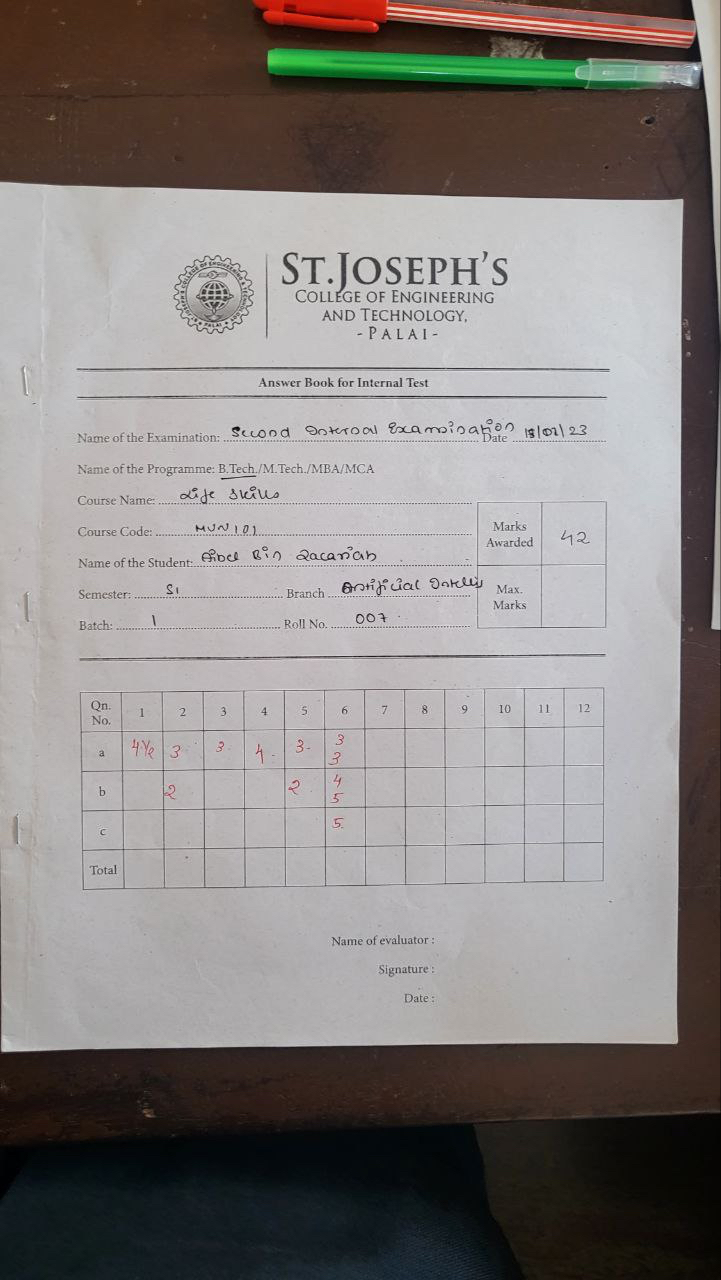 ST.JOSEPH'S
COLLEGE OF ENGINEERING
AND TECHNOLOGY,
- PALAI -
Answer Book for Internal Test
Name of the Examination: Second Internal Examination Date 18/02/23
Name of the Programme: B.Tech./M.Tech./MBA/MCA
Course Name: Life Skills
Course Code: MUN101
Marks Awarded 42
Name of the Student: Bin Zacariah
Semester: S1 Branch Artificial
Max. Marks
Batch: 1 Roll No. 007
Qn. No. 1 2 3 4 5 6 7 8 9 10 11 12
a 4½ 3 3 4 3 3 3
b 2 2 4 5
c 5
Total
Name of evaluator :
Signature :
Date :